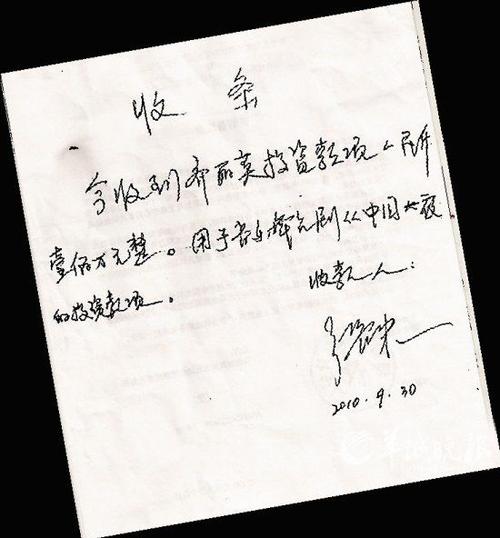 收条
今收到齐丽英投资款项人民币
壹佰万元整。用于音乐 剧 中国 夜
的投资款项。
收款人：
2010.9.30
羊城晚报